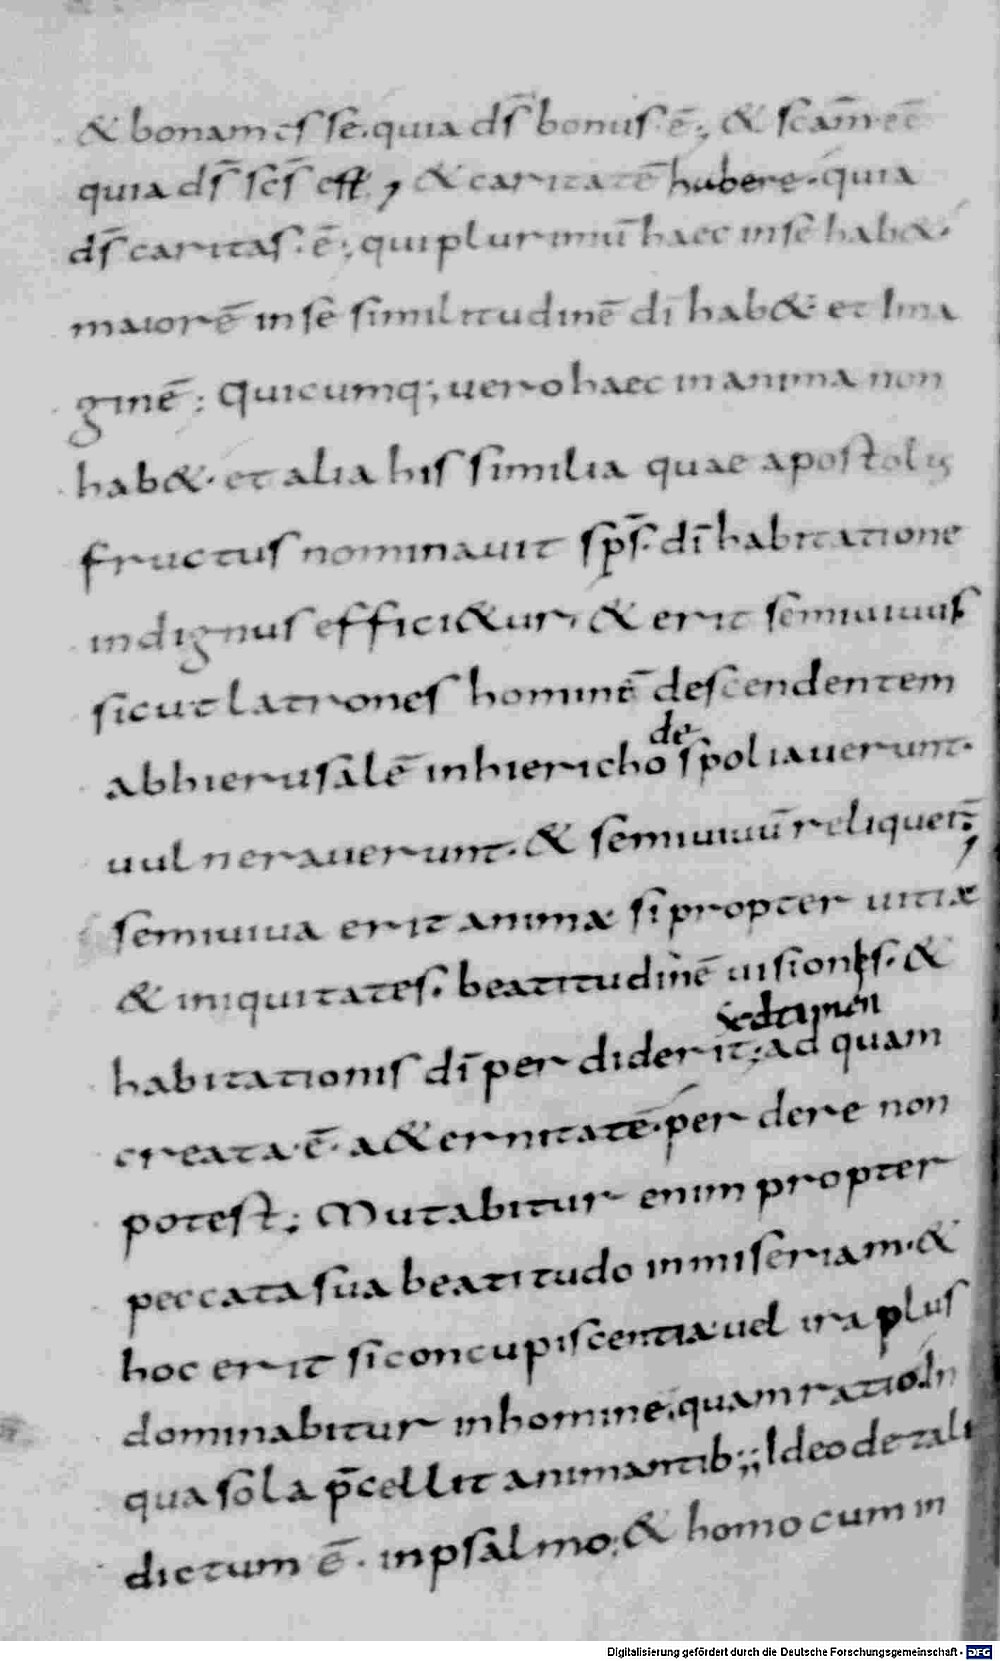 & bonam esse. quia dſ̄ bonus ē; & scām eē
quia dſ̄ scſ̄ est, & caritatē habere. quia
dſ̄ caritas. ē; qui plurimū haec in se hab&.
maiorē in se similitudinē dī hab& et ima
ginē; Quicumq; uero haec in anima non
hab&. et alia his similia quae apostolis
fructus nominauit sp̄s. dī habitatione
indignus effici&ur, & erit semiuiuus
sicut latrones hominē descendentem
ab hierusalē in hiericho despoliauerunt.
uulnerauerunt. & semiuiuū reliquer̄;
semiuiua erit animæ si propter uitiæ
& iniquitates. beatitudinē uisionis. &
sed tamen
habitationis dī perdiderit; ad quam
creata. ē. a&ernitatē. perdere non
potest; Mutabitur enim propter
peccata sua beatitudo in miseriam. &
hoc erit si concupiscentia uel ira plus
dominabitur in homine. quam ratio. In
qua sola p̄cellit animantib;; Ideo de tali
dictum ē. in psalmo; & homo cum in
Digitalisierung gefördert durch die Deutsche Forschungsgemeinschaft - DFG